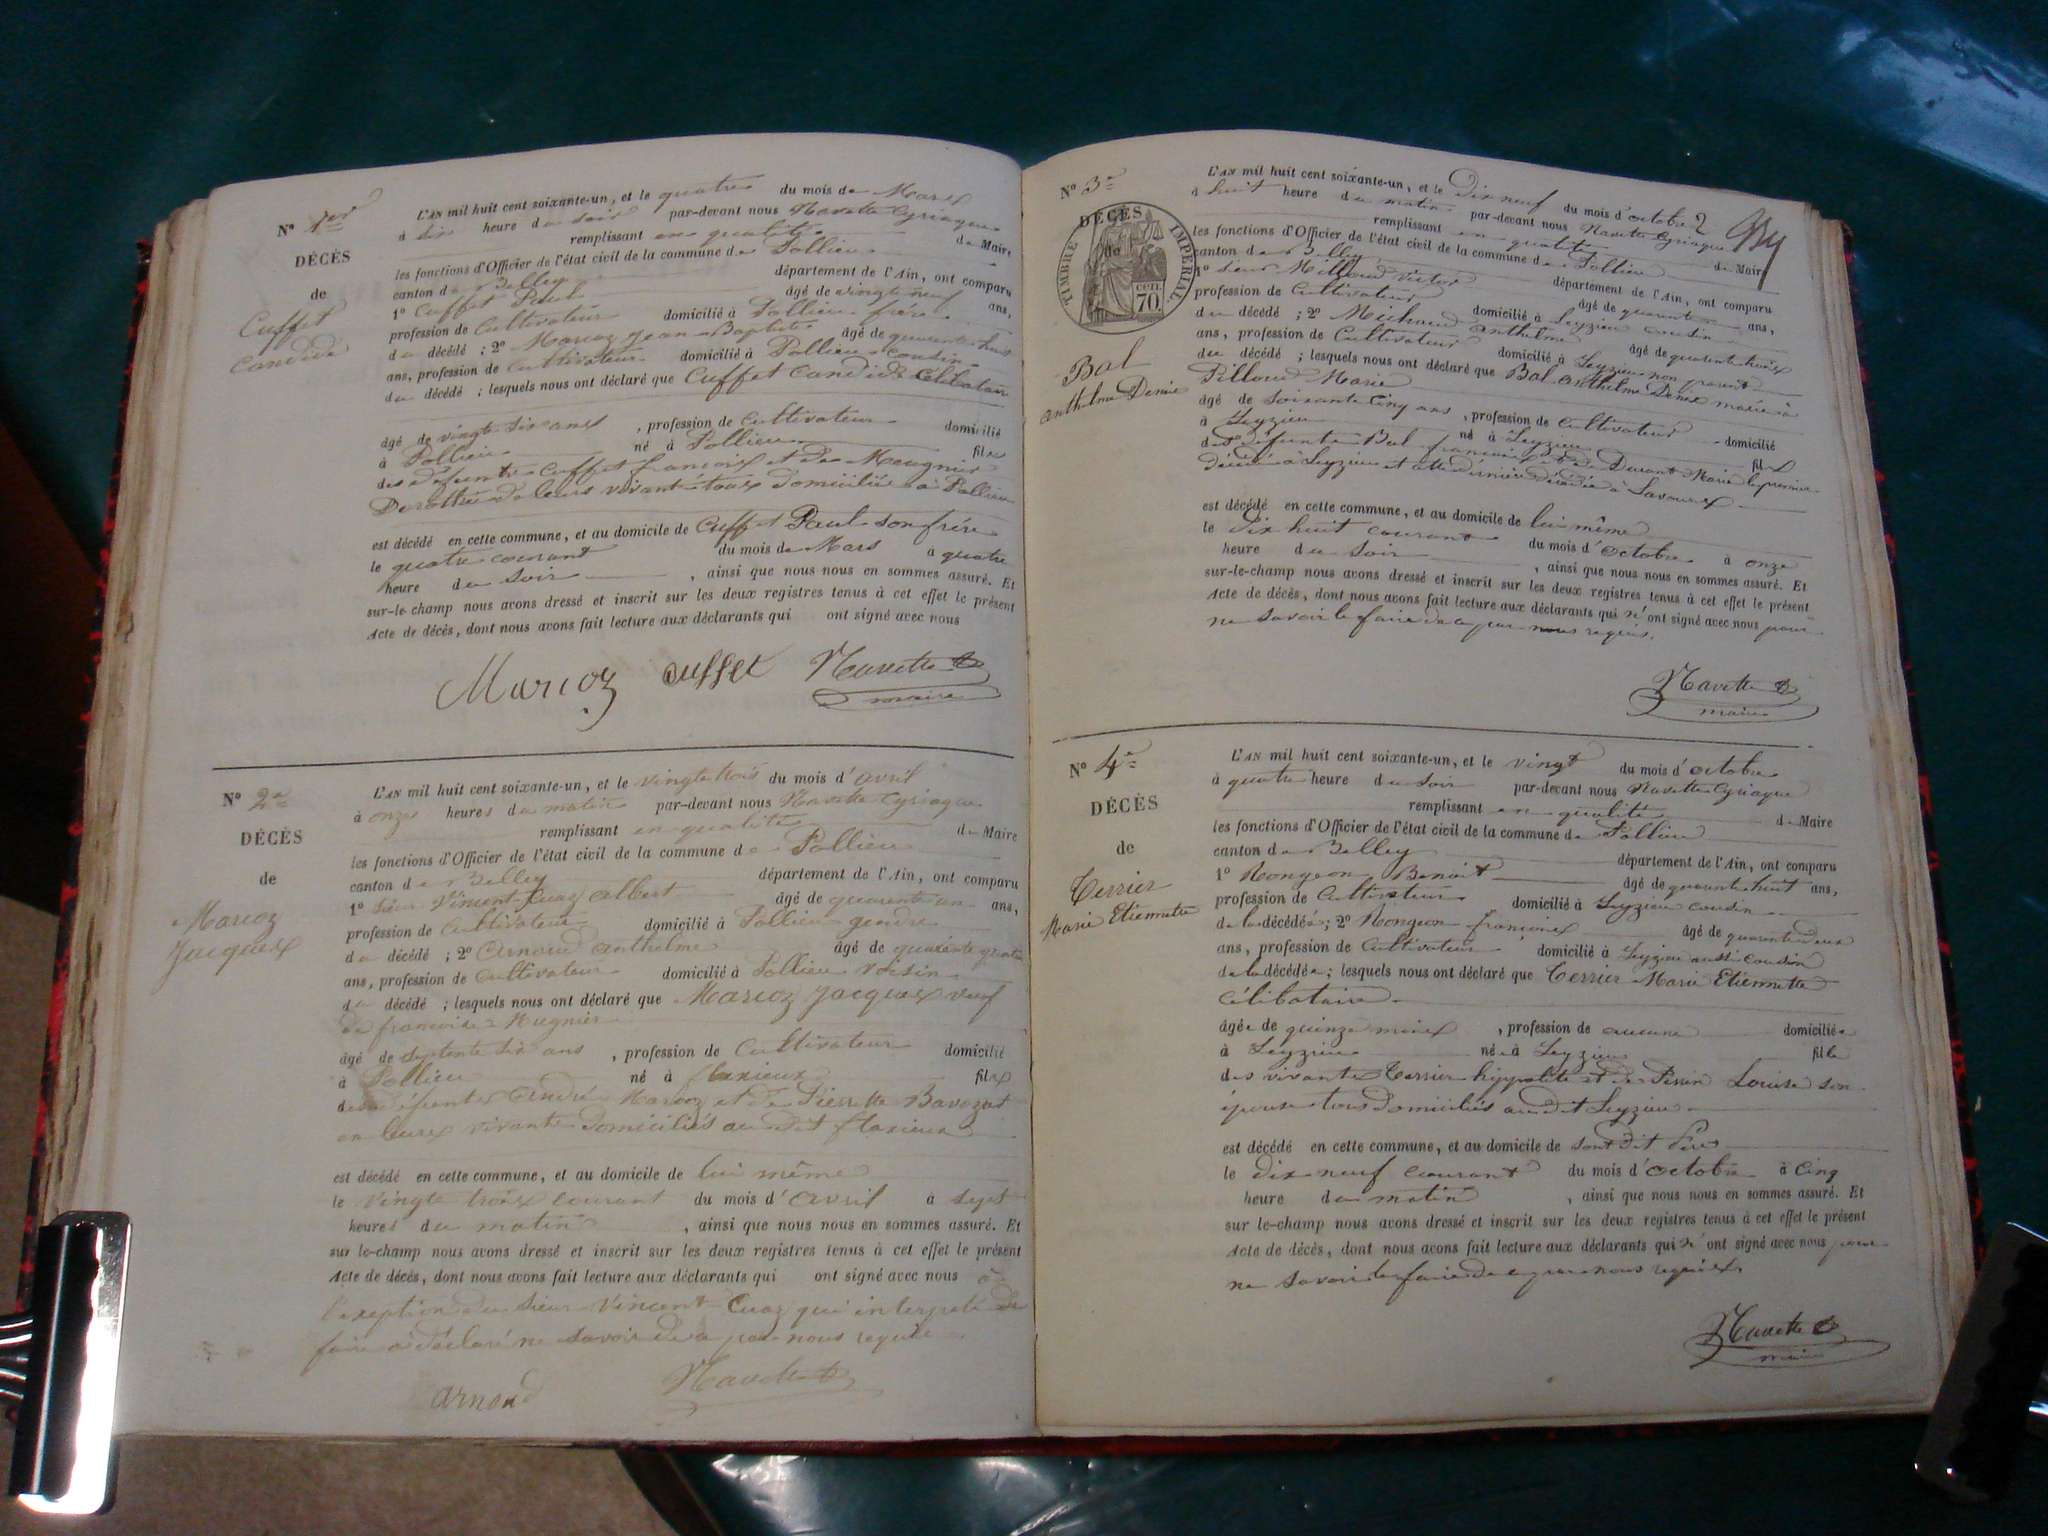 N° 1er
DÉCÈS
de
Cuffet
Candide
L'AN mil huit cent soixante-un, et le quatre du mois de Mars
à six heure du soir par-devant nous Navette Cyriaque
remplissant en qualité de Maire
les fonctions d'Officier de l'état civil de la commune de Pollieu
canton de Belley département de l'Ain, ont comparu
1° Cuffet Paul âgé de vingt neuf ans,
profession de Cultivateur domicilié à Pollieu frère
du décédé ; 2° Marcoz Jean Baptiste âgé de quarante huit
ans, profession de Cultivateur domicilié à Pollieu cousin
du décédé ; lesquels nous ont déclaré que Cuffet Candide Célibataire
âgé de vingt six ans , profession de Cultivateur domicilié
à Pollieu né à Pollieu fils
des défunts Cuffet françois et de Meugnier
Dorothée de leurs vivant tous domiciliés à Pollieu
est décédé en cette commune, et au domicile de Cuffet Paul son frère
le quatre courant du mois de Mars à quatre
heure du soir , ainsi que nous nous en sommes assuré. Et
sur-le-champ nous avons dressé et inscrit sur les deux registres tenus à cet effet le présent
acte de décès, dont nous avons fait lecture aux déclarants qui ont signé avec nous
Marcoz Cuffet Navette
maire
N° 2e
DÉCÈS
de
Marcoz
Jacques
L'AN mil huit cent soixante-un, et le vingt trois du mois d'avril
à onze heures du matin par-devant nous Navette Cyriaque
remplissant en qualité de Maire
les fonctions d'Officier de l'état civil de la commune de Pollieu
canton de Belley département de l'Ain, ont comparu
1° sieur Vincent Cuaz albert âgé de quarante un ans,
profession de Cultivateur domicilié à Pollieu gendre
du décédé ; 2° Arnoud anthelme âgé de quarante quatre
ans, profession de Cultivateur domicilié à Pollieu voisin
du décédé ; lesquels nous ont déclaré que Marcoz Jacques veuf
de françoise Mugnier
âgé de septente six ans , profession de Cultivateur domicilié
à Pollieu né à flaxieux fils
des défunts André Marcoz et de Pierrette Bavozat
en leurs vivants domiciliés au dit flaxieux
est décédé en cette commune, et au domicile de lui même
le vingt trois courant du mois d'avril à sept
heures du matin , ainsi que nous nous en sommes assuré. Et
sur le-champ nous avons dressé et inscrit sur les deux registres tenus à cet effet le présent
acte de décès, dont nous avons fait lecture aux déclarants qui ont signé avec nous à
l'exeption du sieur Vincent Cuaz qui interpelé de
faire a déclaré ne savoir de a par nous requis
arnoud Navette
N° 3e
DÉCÈS
de
TIMBRE IMPÉRIAL
CCII.
70.
Bal
anthelme Denis
L'AN mil huit cent soixante-un, et le Dix neuf du mois d'octobre
à huit heure du matin par-devant nous Navette Cyriaque
remplissant en qualité de Maire
les fonctions d'Officier de l'état civil de la commune de Pollieu
canton de Belley département de l'Ain, ont comparu
1° sieur Milloud victor âgé de quarante ans,
profession de Cultivateur domicilié à Leyzieu cousin
du décédé ; 2° Michaud anthelme âgé de quarante trois
ans, profession de Cultivateur domicilié à Leyzieu non parent
du décédé ; lesquels nous ont déclaré que Bal anthelme Denis marié à
Pilloud Marie
âgé de soixante cinq ans , profession de Cultivateur domicilié
à Leyzieu né à Leyzieu fils
des défunts Bal françois et de Durant Marie le premier
décédé à Leyzieu et cette dernière décédée à Lavours
est décédé en cette commune, et au domicile de lui même
le Dix huit courant du mois d'octobre à onze
heure du soir , ainsi que nous nous en sommes assuré. Et
sur-le-champ nous avons dressé et inscrit sur les deux registres tenus à cet effet le présent
acte de décès, dont nous avons fait lecture aux déclarants qui n'ont signé avec nous pour
ne savoir le faire de ce par nous requis.
Navette
maire
N° 4e
DÉCÈS
de
Terrier
Marie Etiennette
L'AN mil huit cent soixante-un, et le vingt du mois d'octobre
à quatre heure du soir par-devant nous Navette Cyriaque
remplissant en qualité de Maire
les fonctions d'Officier de l'état civil de la commune de Pollieu
canton de Belley département de l'Ain, ont comparu
1° Mongeon Benoit âgé de quarante huit ans,
profession de Cultivateur domicilié à Leyzieu cousin
de la décédée ; 2° Mongeon françois âgé de quarante deux
ans, profession de Cultivateur domicilié à Leyzieu aussi cousin
de la décédée ; lesquels nous ont déclaré que Terrier Marie Etiennette
célibataire
âgée de quinze mois , profession de aucune domiciliée
à Leyzieu née à Leyzieu fille
des vivants Terrier hyppolite et de Perrin Louise son
épouse tous domiciliés au dit Leyzieu
est décédé en cette commune, et au domicile de sont dit Père
le Dix neuf courant du mois d'octobre à Cinq
heure du matin , ainsi que nous nous en sommes assuré. Et
sur le-champ nous avons dressé et inscrit sur les deux registres tenus à cet effet le présent
acte de décès, dont nous avons fait lecture aux déclarants qui n'ont signé avec nous pour
ne savoir le faire de ce par nous requis
Navette
maire